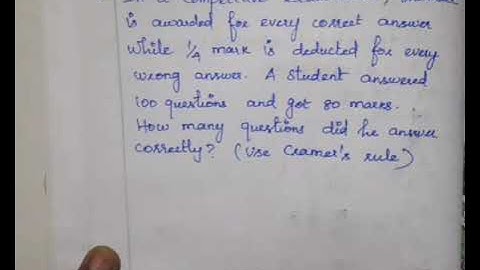 is awarded for every correct answer
while 1/4 mark is deducted for every
wrong answer. A student answered
100 questions and got 80 marks.
How many questions did he answer
correctly? (Use Cramer's rule)